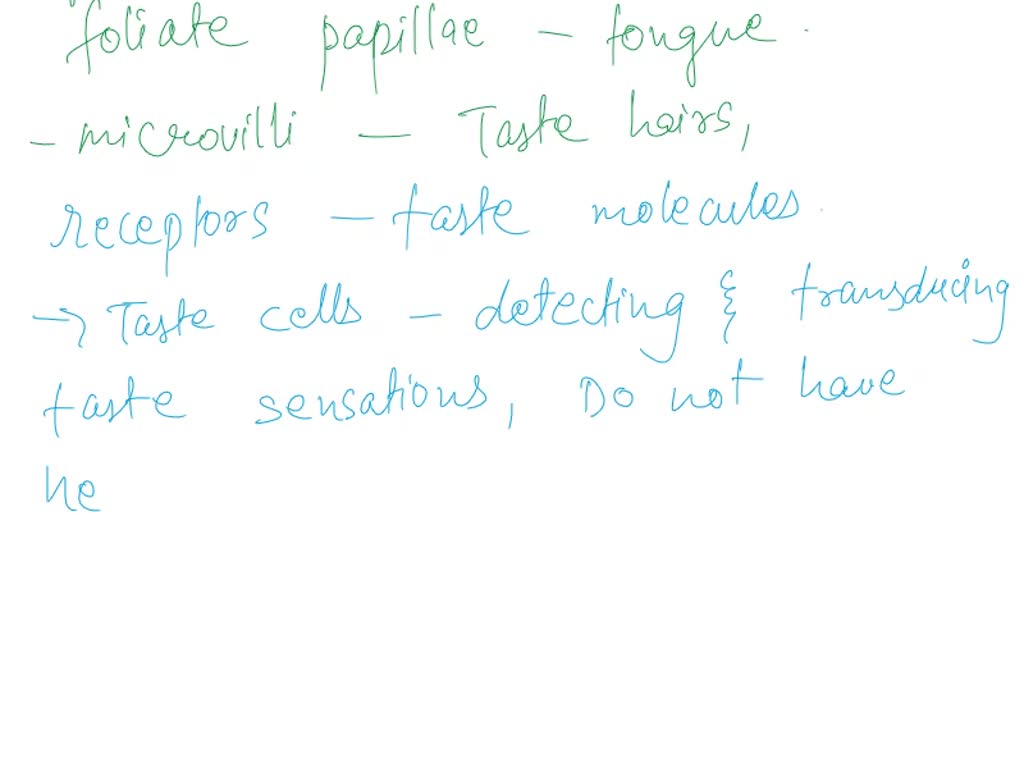 foliate papillae - tongue.
- microvilli - Taste hairs,
receptors - taste molecules.
→ Taste cells - detecting & transducing
taste sensations, Do not have
ne